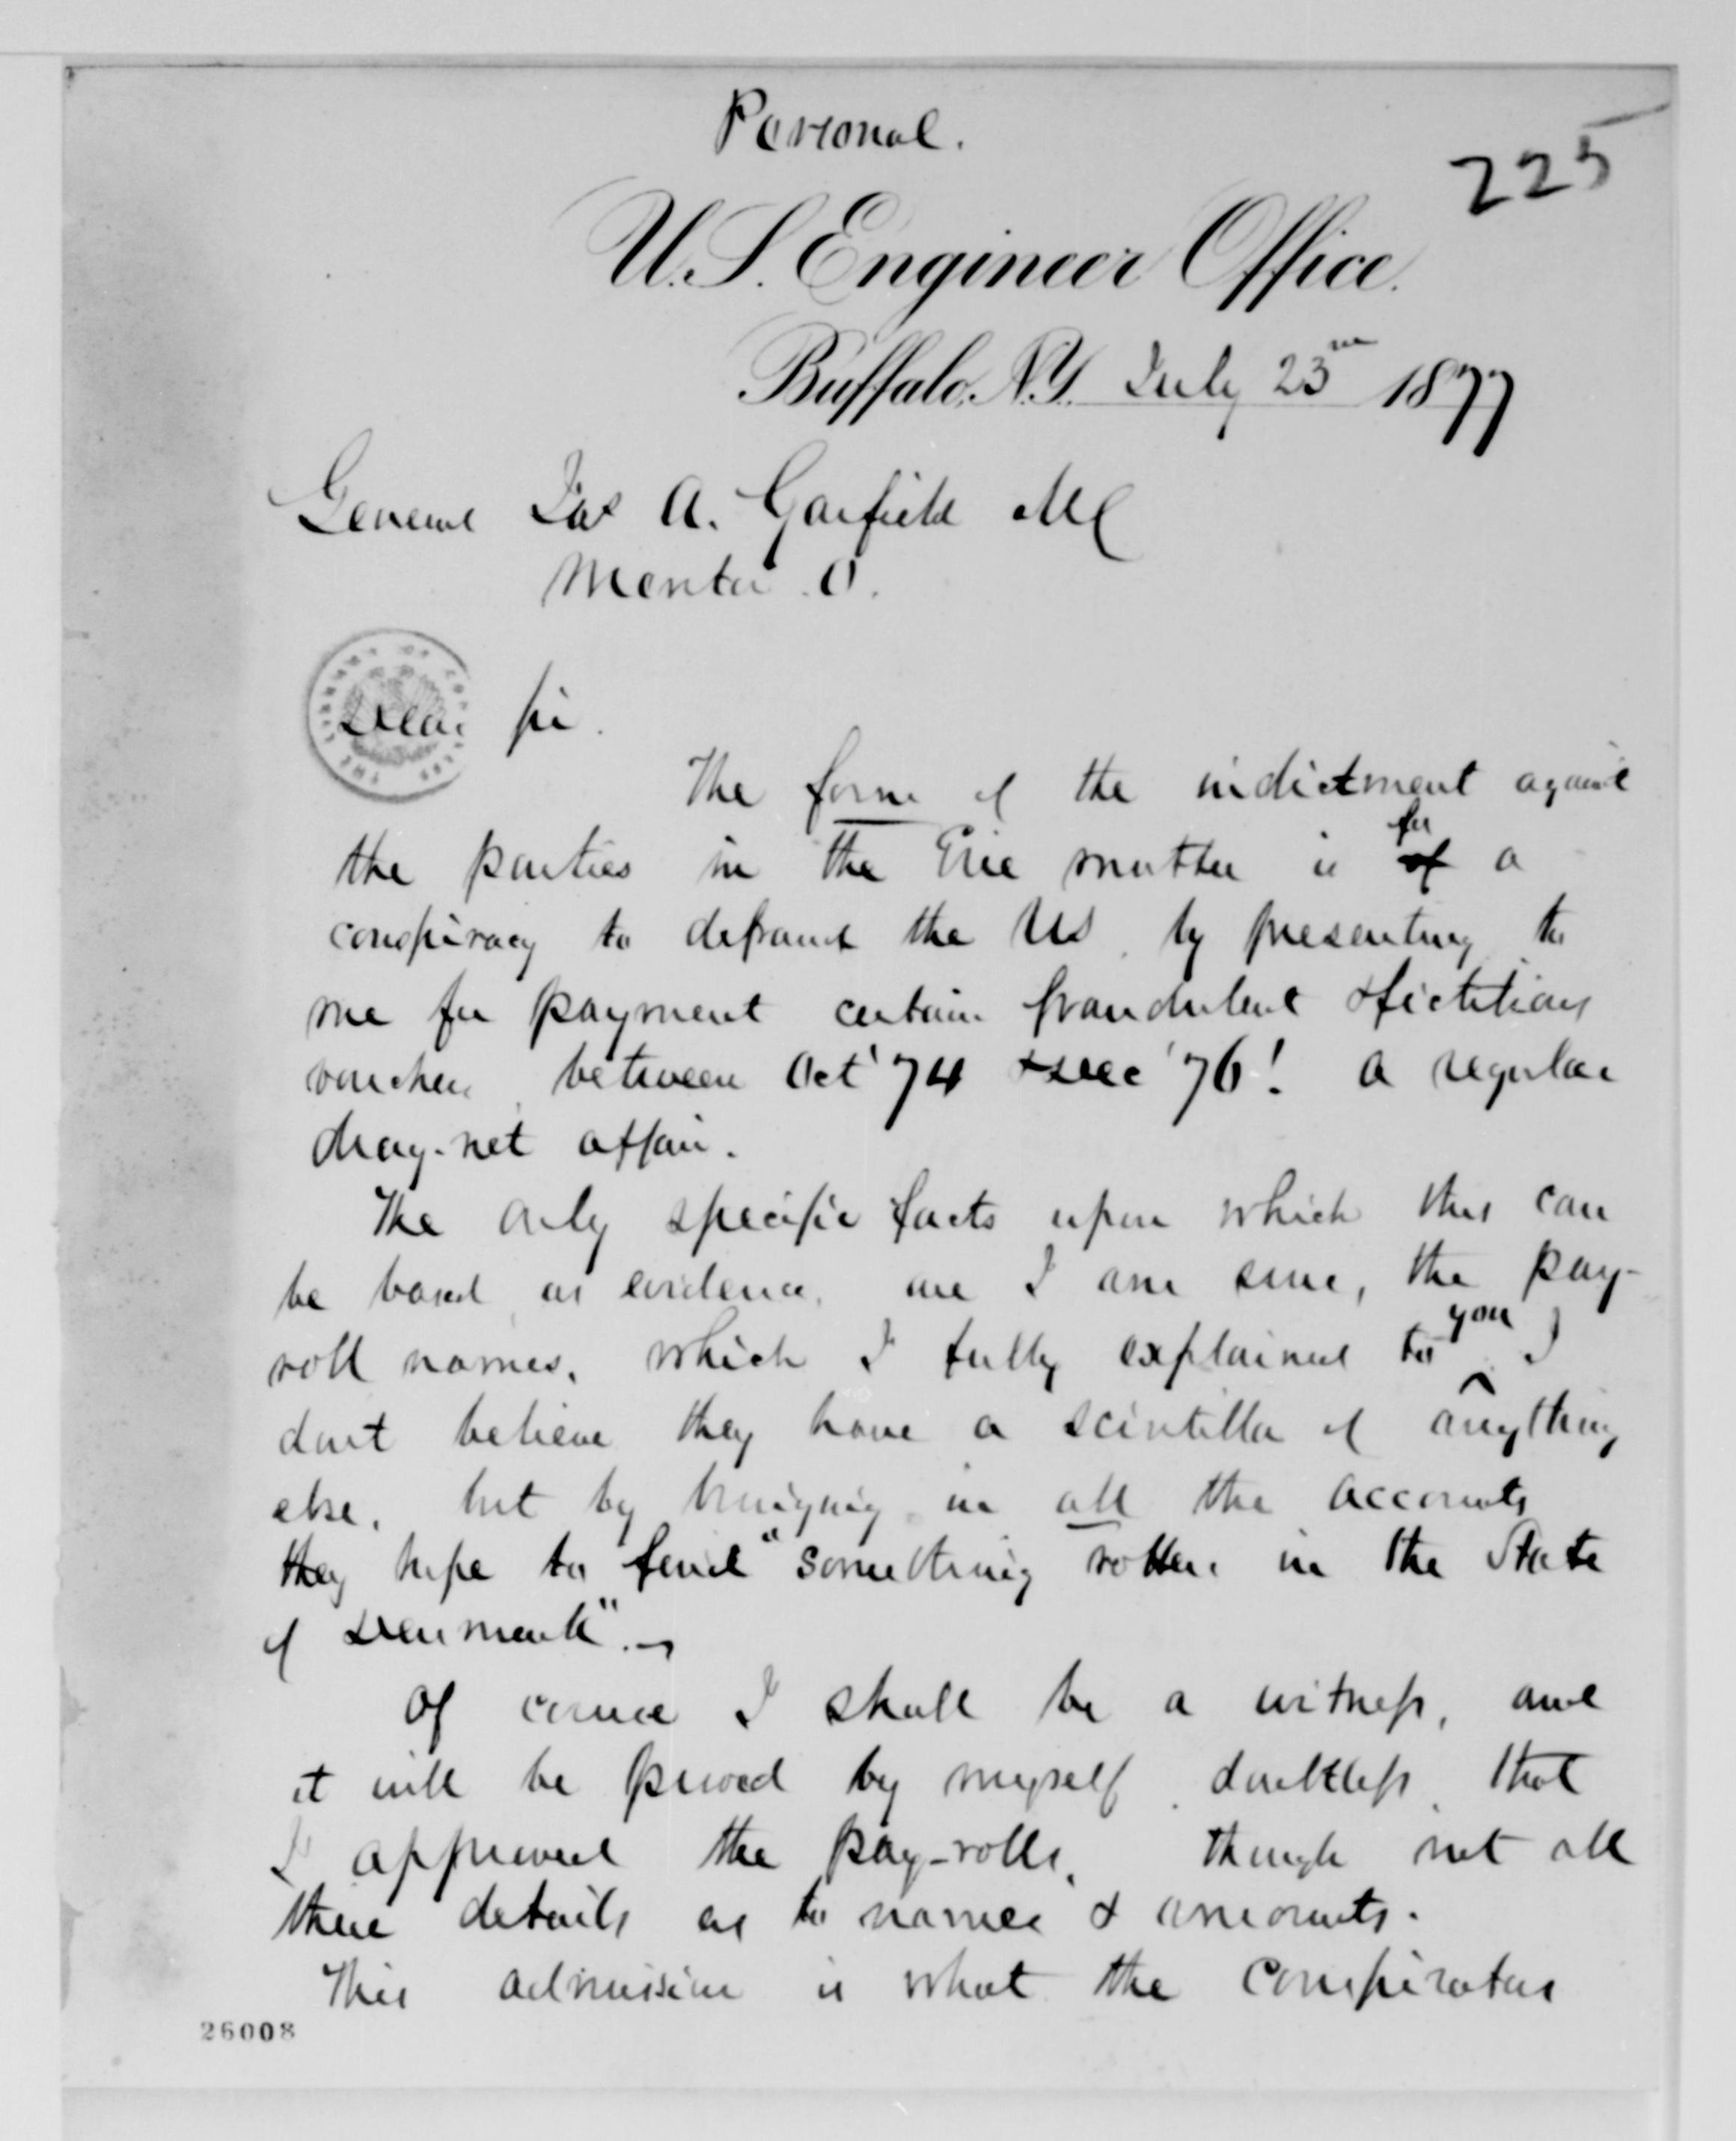 Personal.
225
U.S. Engineer Office.
Buffalo, N.Y. July 23rd 1877
General Jas A. Garfield MC
Mentor. O.
Dear Sir.
The form of the indictment against
for
the parties in the Erie matter is of a
conspiracy to defraud the US. by presenting to
me for payment certain fraudulent & fictitious
vouchers, between Oct '74 & Dec '76! A regular
drag-net affair.
The only specific facts upon which this can
be based as evidence, are I am sure, the pay-
you
roll names, which I fully explained to ^. I
dont believe they have a scintilla of anything
else, but by bringing in all the accounts
they hope to find "something rotten in the State
of Denmark".
Of course I shall be a witness, and
it will be proved by myself, doubtless, that
I approved the pay-rolls, though not all
these details as to names & amounts.
This admission is what the conspirators
26008